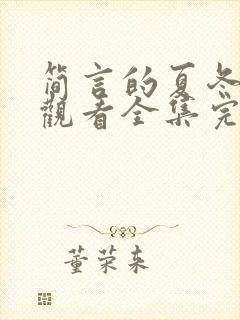 简言的夏冬
觀看全集完
董荣来